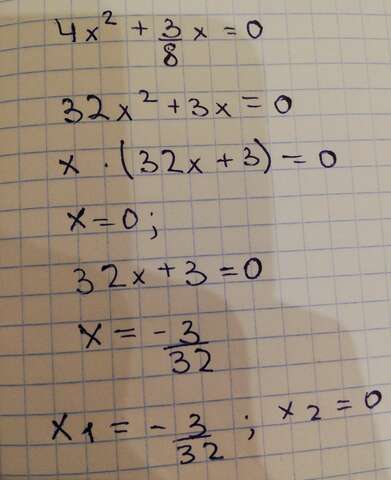 4x² + 3/8 x = 0
32x² + 3x = 0
x · (32x + 3) = 0
x = 0 ;
32x + 3 = 0
x = - 3/32
x1 = - 3/32 ; x2 = 0